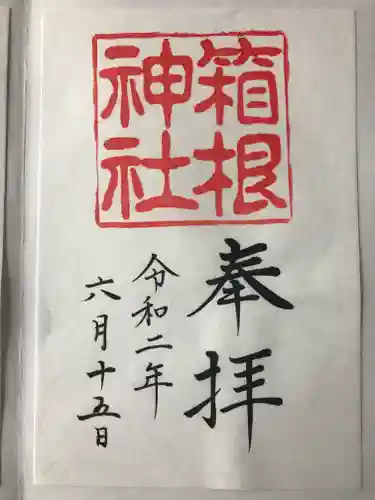 箱根
神社
奉拝
令和二年
六月十五日